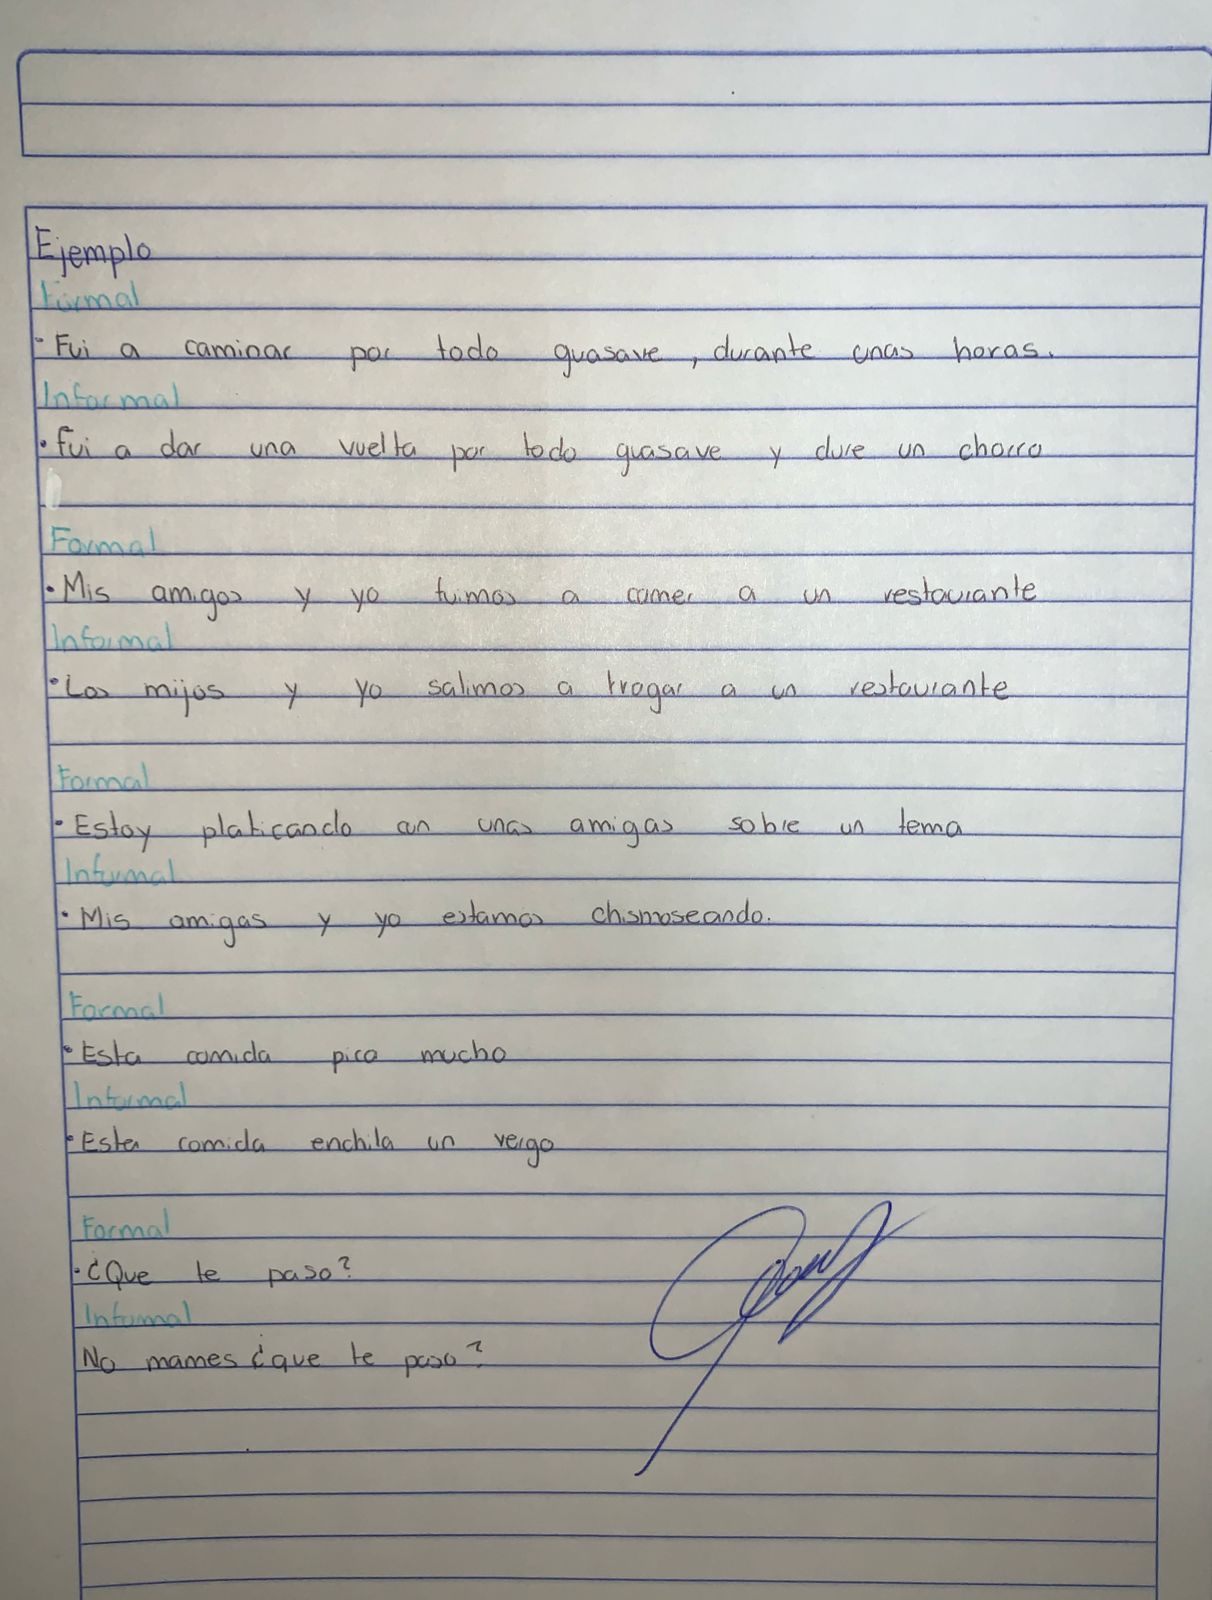 Ejemplo
Formal
• Fui a caminar por todo guasave, durante unas horas.
Informal
• Fui a dar una vuelta por todo guasave y dure un chorro
Formal
• Mis amigos y yo fuimos a comer a un restaurante
Informal
• Los mijos y yo salimos a tragar a un restaurante
Formal
• Estoy platicando con unas amigas sobre un tema
Informal
• Mis amigas y yo estamos chismoseando.
Formal
• Esta comida pica mucho
Informal
• Esta comida enchila un vergo
Formal
• ¿Que te paso?
Informal
No mames ¿que te paso?